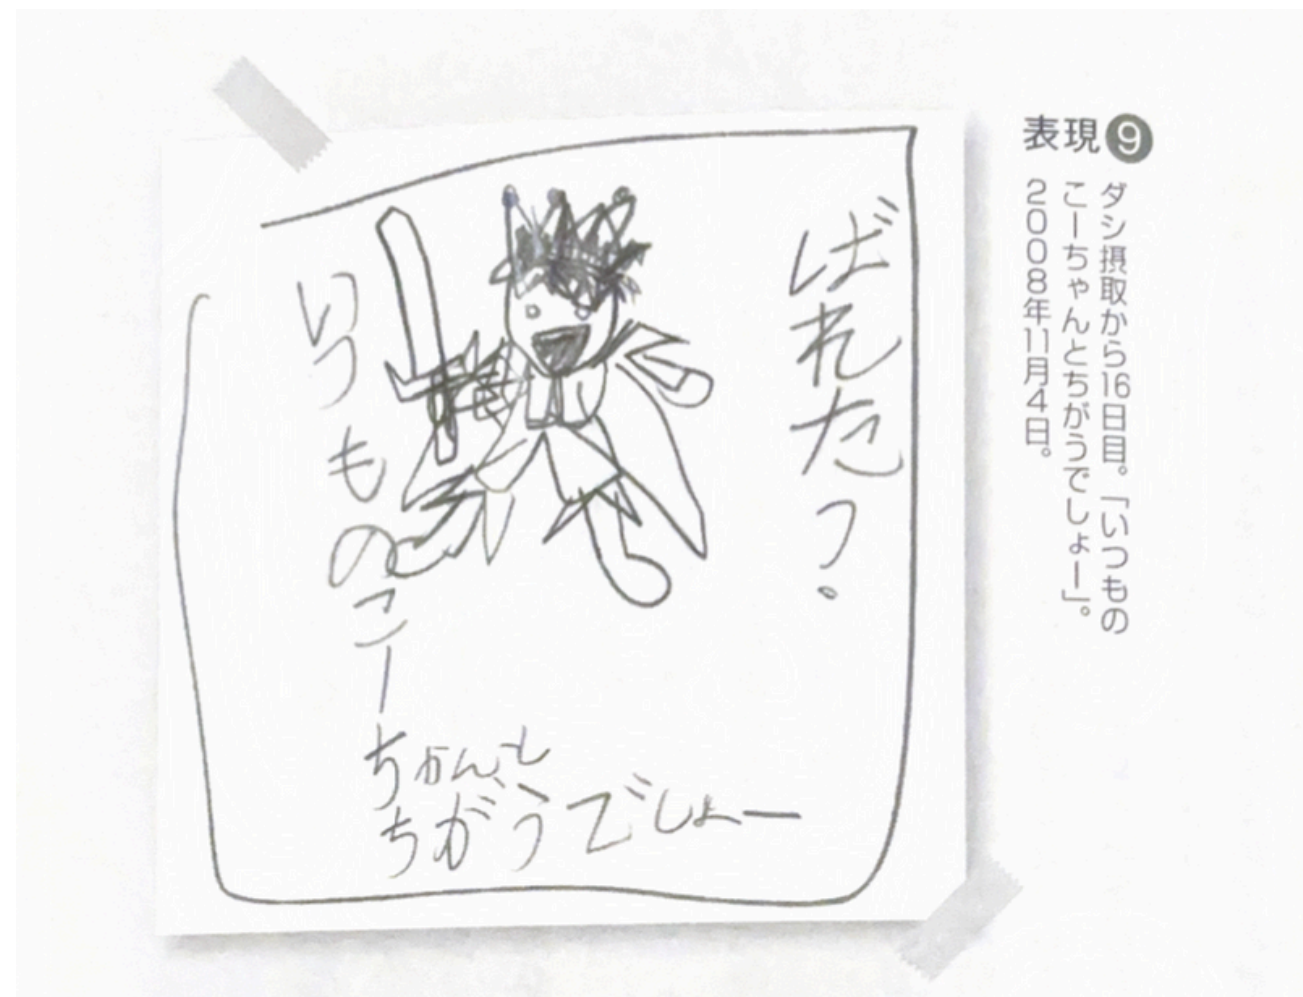 表現9
ダシ摂取から16日目。「いつもの
こーちゃんとちがうでしょー」。
2008年11月4日。
ばれた?
いつものこー
ちゃんと
ちがうでしょー